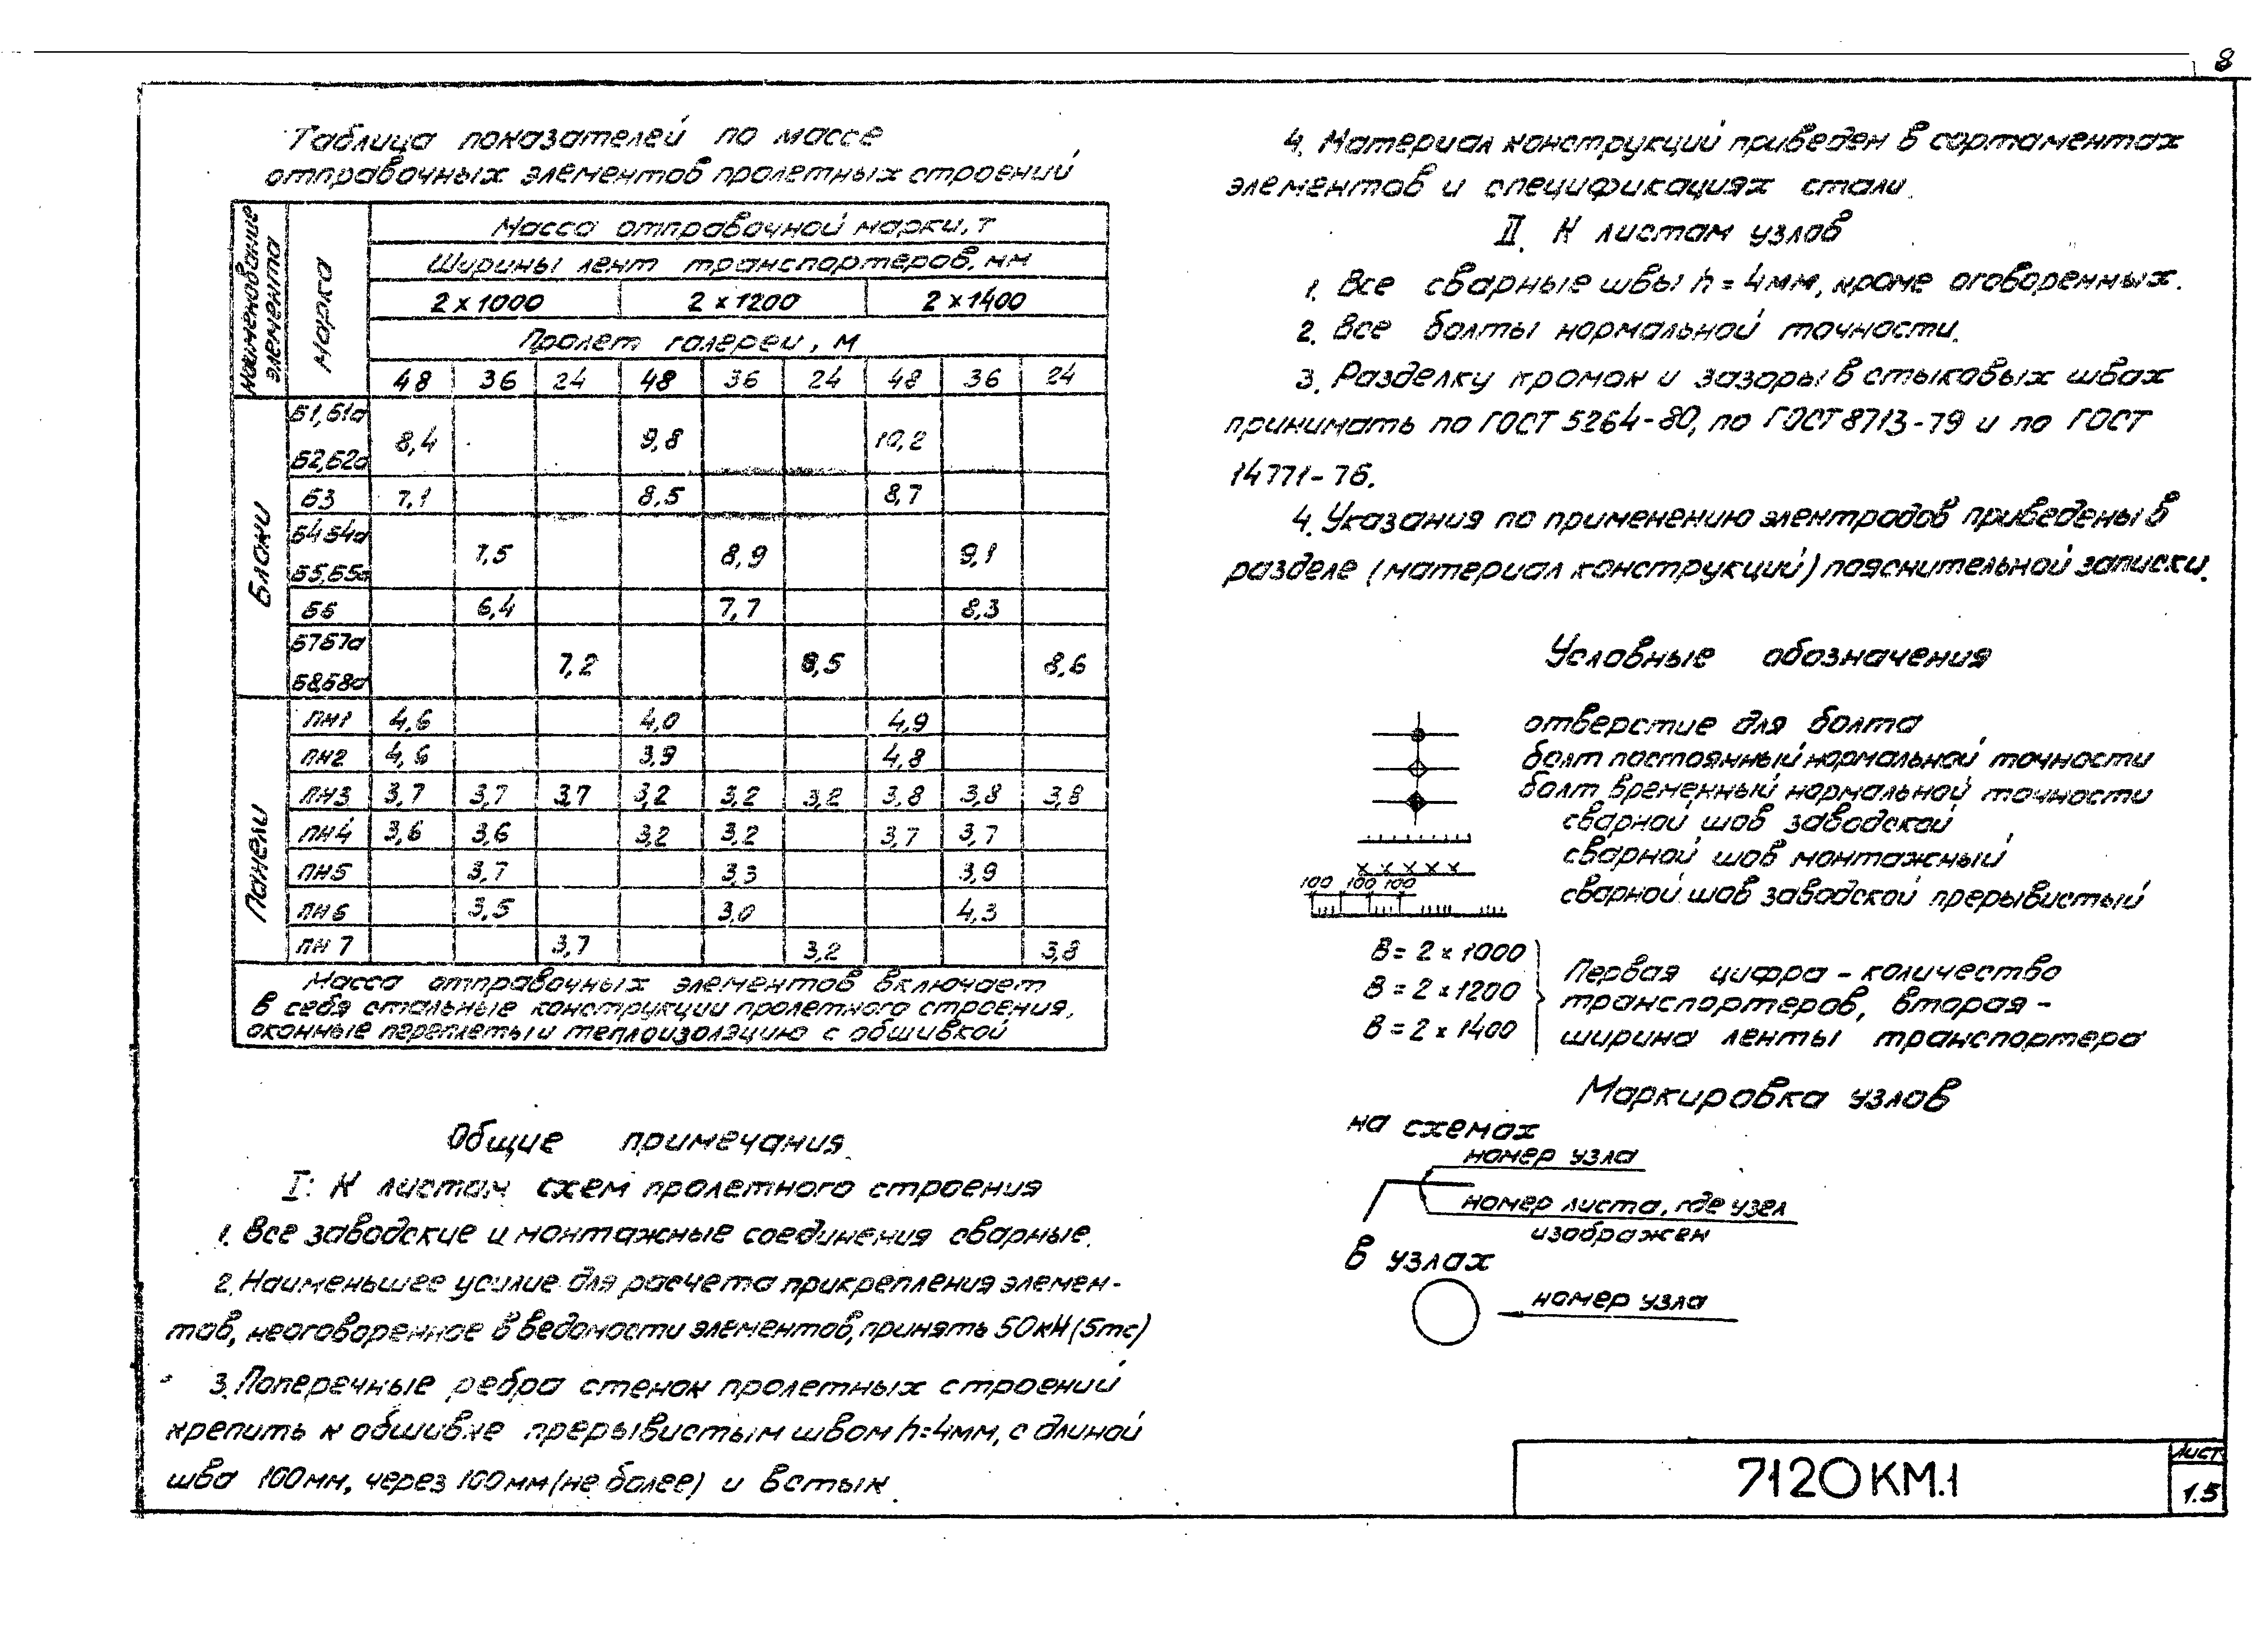 8
Таблица показателей по массе
отправочных элементов пролетных строений
Наименование элемента
Марка
Масса отправочной марки, т
Ширины лент транспортеров, мм
2 x 1000 2 x 1200 2 x 1400
Пролет галереи, м
48 36 24 48 36 24 48 36 24
Блоки
Б1, Б1а
8,4 9,8 10,2
Б2, Б2а
Б3 7,1 8,5 8,7
Б4 Б4а
7,5 8,9 9,1
Б5, Б5а
Б6 6,4 7,7 8,3
Б7 Б7а
7,2 8,5 8,6
Б8, Б8а
Панели
ПН1 4,6 4,0 4,9
ПН2 4,6 3,9 4,8
ПН3 3,7 3,7 3,7 3,2 3,2 3,2 3,8 3,8 3,8
ПН4 3,6 3,6 3,2 3,2 3,7 3,7
ПН5 3,7 3,3 3,9
ПН6 3,5 3,0 4,3
ПН 7 3,7 3,2 3,8
Масса отправочных элементов включает
в себя стальные конструкции пролетного строения,
оконные переплеты и теплоизоляцию с обшивкой
Общие примечания.
I: К листам схем пролетного строения
1. Все заводские и монтажные соединения сварные.
2. Наименьшее усилие для расчета прикрепления элемен-
тов, неоговоренное в ведомости элементов, принять 50кН (5тс)
3. Поперечные ребра стенок пролетных строений
крепить к обшивке прерывистым швом h=4мм, с длиной
шва 100мм, через 100мм (не более) и встык.
4. Материал конструкций приведен в сортаментах
элементов и спецификациях стали.
II. К листам узлов
1. Все сварные швы h = 4мм, кроме оговоренных.
2. Все болты нормальной точности.
3. Разделку кромок и зазоры в стыковых швах
принимать по ГОСТ 5264-80, по ГОСТ 8713-79 и по ГОСТ
14771-76.
4. Указания по применению электродов приведены в
разделе (материал конструкций) пояснительной записки.
Условные обозначения
отверстие для болта
болт постоянный нормальной точности
болт временный нормальной точности
сварной шов заводской
сварной шов монтажный
100 100 100
сварной шов заводской прерывистый
В = 2 x 1000
В = 2 x 1200
В = 2 x 1400
Первая цифра - количество
транспортеров, вторая -
ширина ленты транспортера
Маркировка узлов
на схемах
номер узла
номер листа, где узел
изображен
в узлах
номер узла
7120КМ.1
Лист
1.5